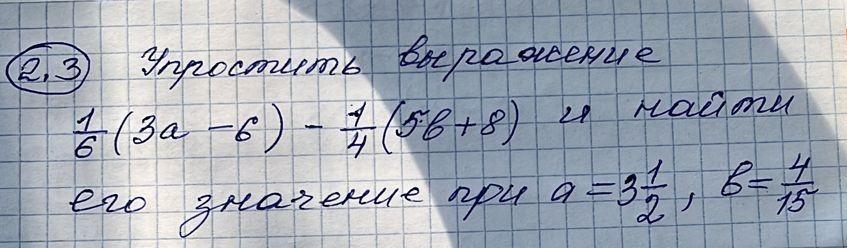 2.3 Упростить выражение
1/6 (3а − 6) − 1/4 (5в + 8) и найти
его значение при а = 3 1/2, в = 4/15